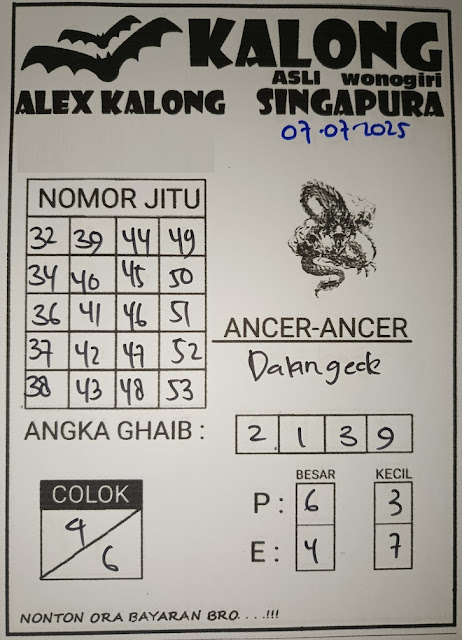 KALONG
ASLI wonogiri
ALEX KALONG SINGAPURA
07.07.2025
NOMOR JITU
32 39 44 49
34 40 45 50
36 41 46 51
37 42 47 52
38 43 48 53
ANCER-ANCER
ANGKA GHAIB : 2 1 3 9
BESAR KECIL
P : 6 3
E : 4 7
COLOK
4
6
NONTON ORA BAYARAN BRO. . . .!!!